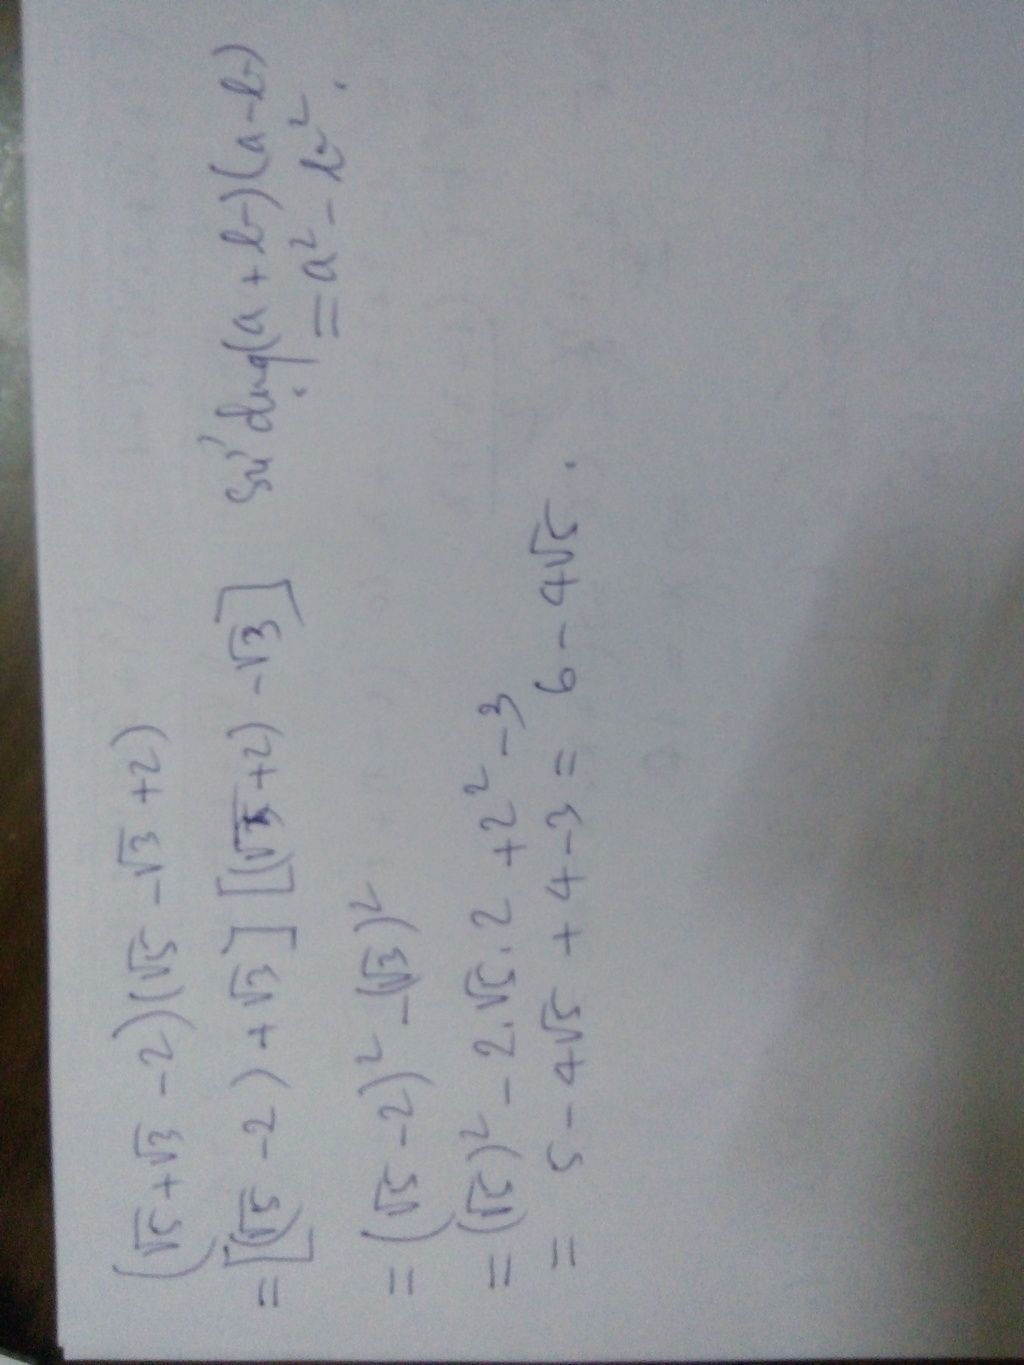 (√5 + √3 - 2)(√5 - √3 + 2)
= [(√5 - 2) + √3] [(√5 + 2) - √3] Sử dụng (a + b)(a - b)
= a² - b².
= (√5 - 2)² - (√3)²
= (√5)² - 2.√5.2 + 2² - 3
= 5 - 4√5 + 4 - 3 = 6 - 4√5.